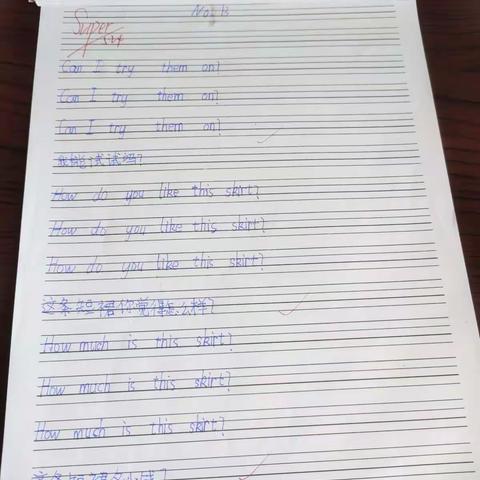 No. 13
Super
Can I try them on?
Can I try them on?
Can I try them on?
我能试试吗?
How do you like this skirt?
How do you like this skirt?
How do you like this skirt?
这条短裙你觉得怎么样?
How much is this skirt?
How much is this skirt?
How much is this skirt?
这条短裙多少钱?